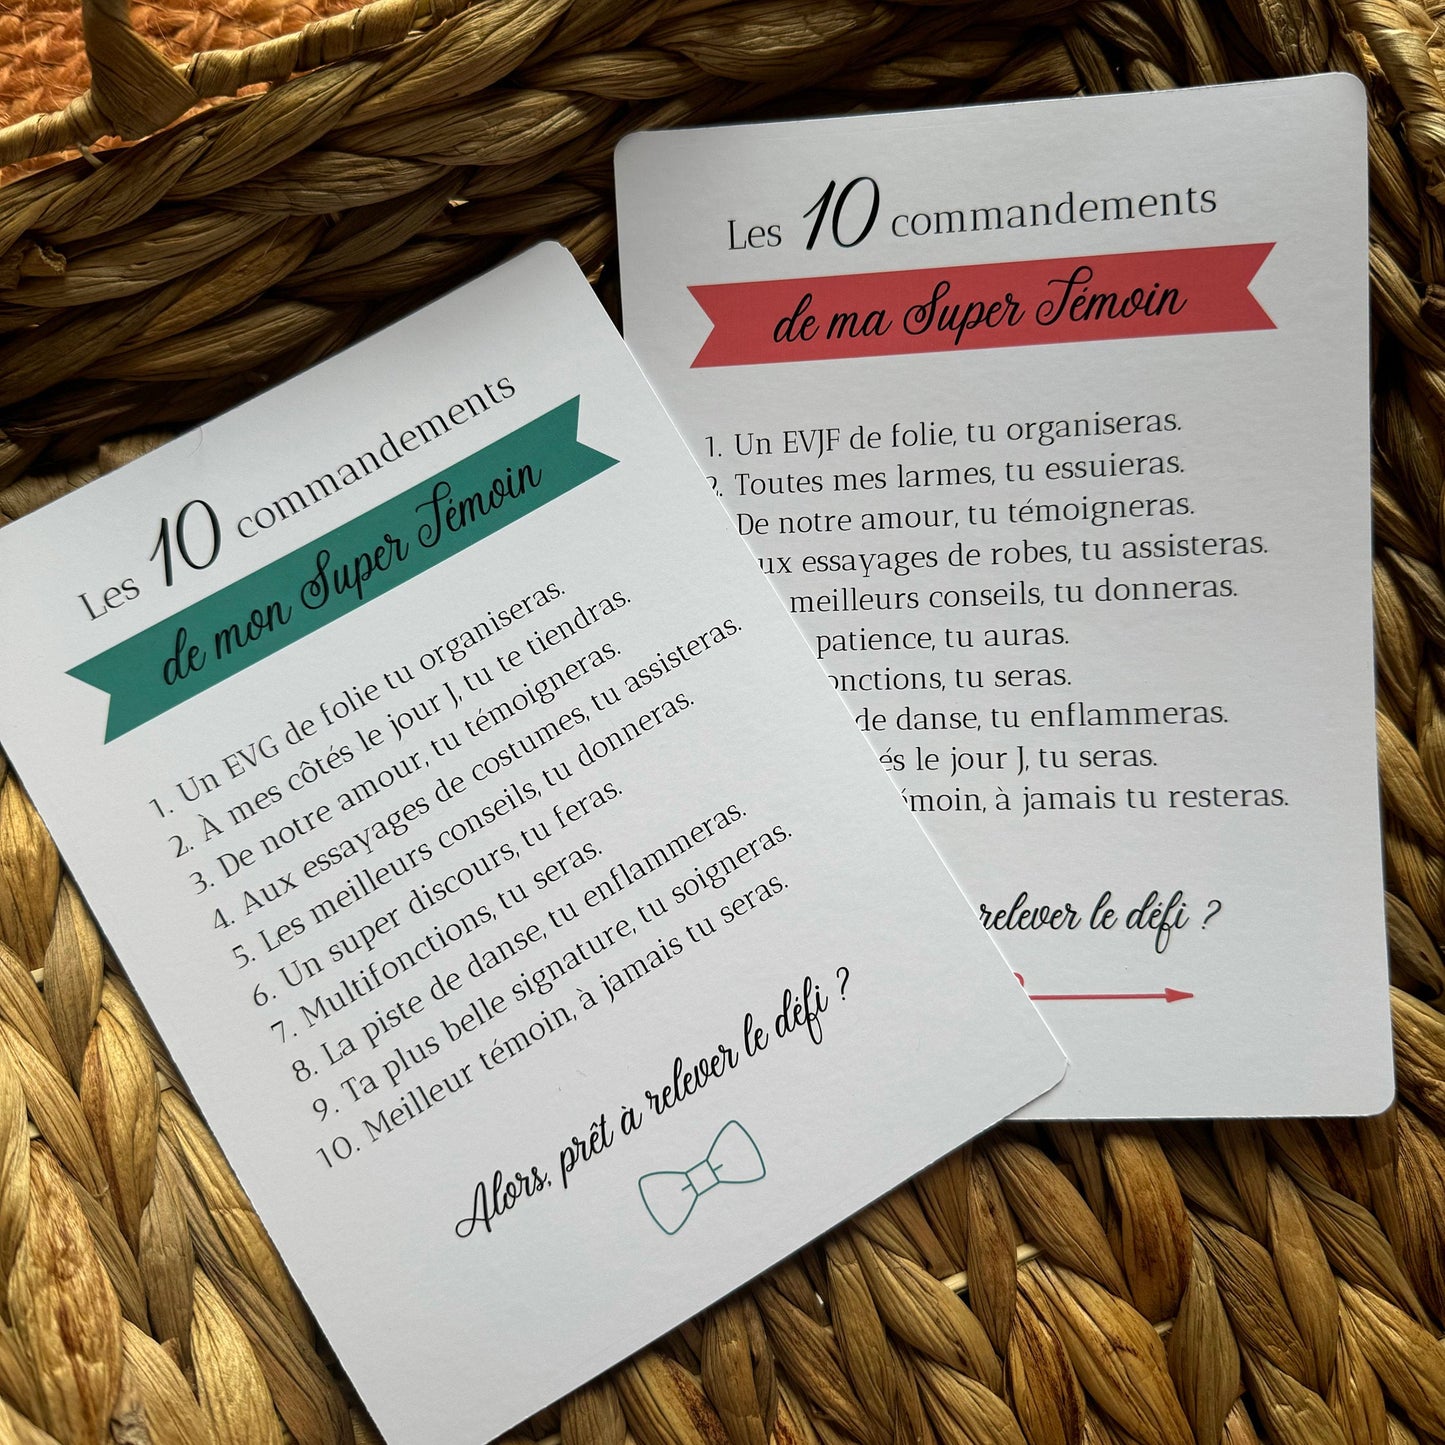 Les 10 commandements
de mon Super Témoin
1. Un EVG de folie tu organiseras.
2. À mes côtés le jour J, tu te tiendras.
3. De notre amour, tu témoigneras.
4. Aux essayages de costumes, tu assisteras.
5. Les meilleurs conseils, tu donneras.
6. Un super discours, tu feras.
7. Multifonctions, tu seras.
8. La piste de danse, tu enflammeras.
9. Ta plus belle signature, tu soigneras.
10. Meilleur témoin, à jamais tu seras.
Alors, prêt à relever le défi ?
Les 10 commandements
de ma Super Témoin
1. Un EVJF de folie, tu organiseras.
2. Toutes mes larmes, tu essuieras.
De notre amour, tu témoigneras.
ux essayages de robes, tu assisteras.
meilleurs conseils, tu donneras.
patience, tu auras.
onctions, tu seras.
de danse, tu enflammeras.
és le jour J, tu seras.
moin, à jamais tu resteras.
relever le défi ?